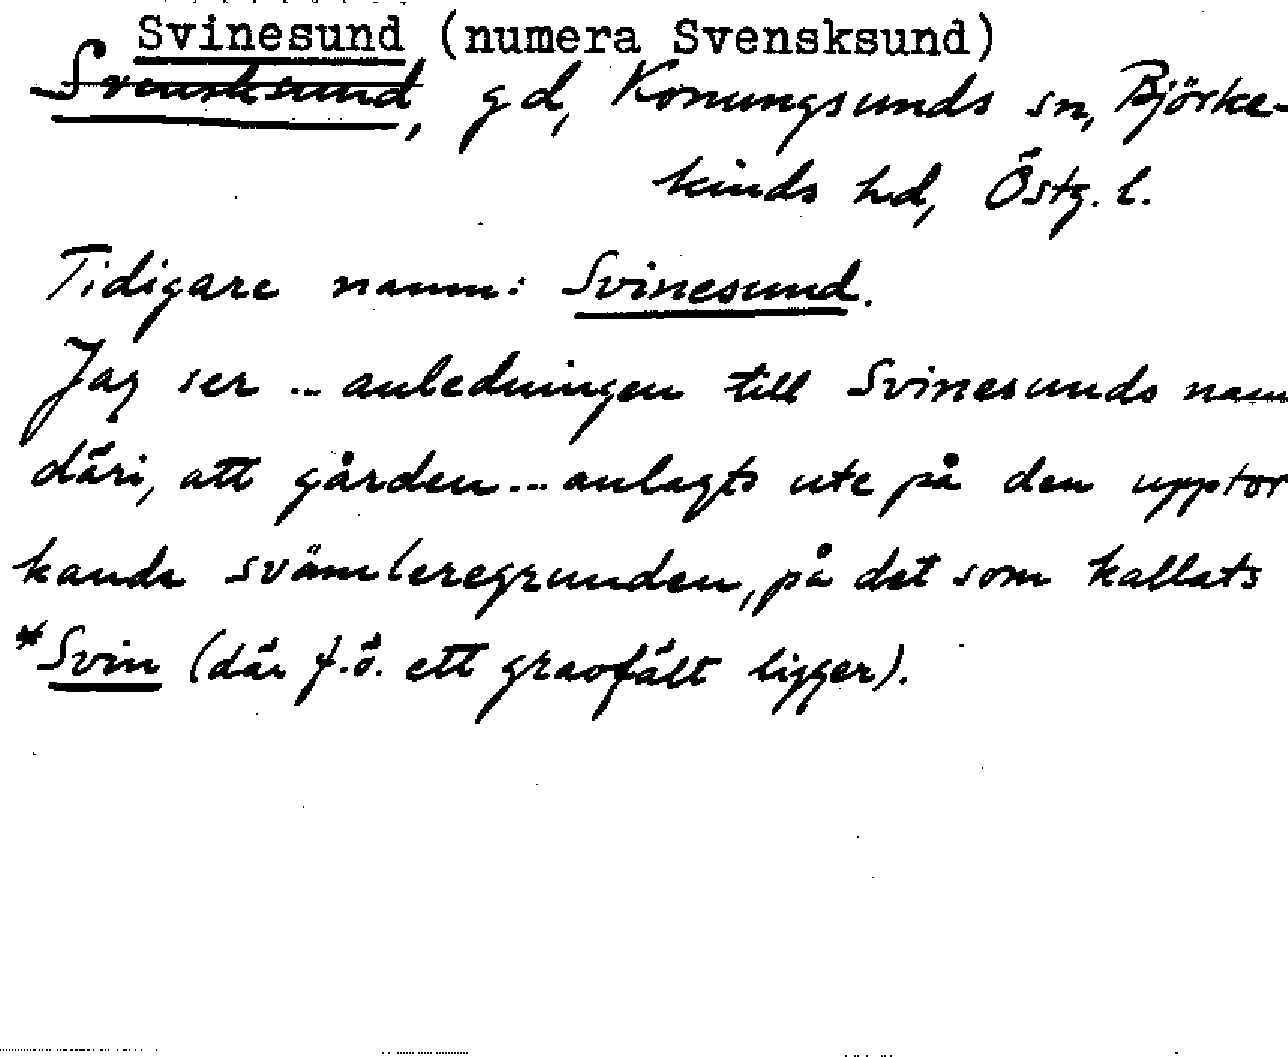 Svinesund (numera Svensksund)
Svensksund, gd, Konungsunds sn, Björke-
kinds hd, Östg. l.
Tidigare namn: Svinesund.
Jag ser ... anledningen till Svinesunds namn
däri, att gården ... anlagts ute på den upptor
kande svämleregrunden, på det som kallats
*Svin (där f.ö. ett gravfält ligger).